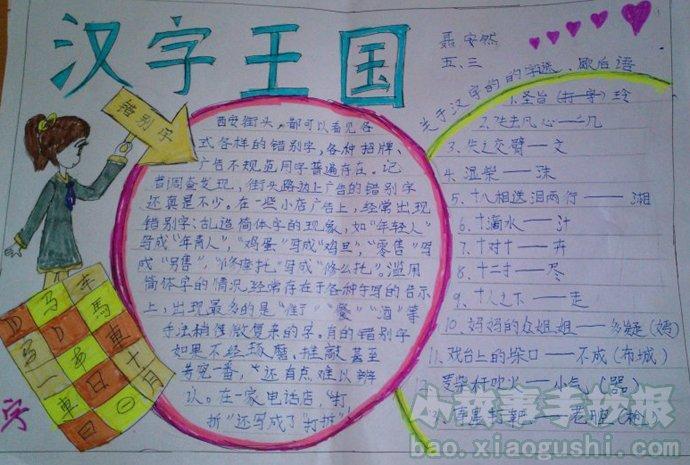 汉字王国
聂安然
五、三
错别字
西安街头,都可以看见各
式各样的错别字,各种招牌、
广告不规范用字普遍存在。记
者调查发现,街头路边上广告的错别字
还真是不少。在一些小店广告上,经常出现
错别字、乱造简体字的现象,如“年轻人”
写成“年青人”,“鸡蛋”写成“鸡旦”,“零售”写
成“另售”,“修摩托”写成“修么托”。滥用
简体字的情况,经常存在于各种手写的告示
上,出现最多的是
“餐”“酒”等
手法稍微复杂的字。有的错别字
如果不经琢磨、推敲甚至
考究一番,还有点难以辨
认。在一家电话店,“打
折”还写成了“打拆”!
关于汉字的的字谜、歇后语
1.圣旨(打一字)玲
2.
几
3.失之交臂——文
4.湿柴——珠
5.十八相送泪两行——湘
6.十滴水——汁
7.十对十——卉
8.十二寸——尽
9.十人之下——走
10.妈妈的众姐姐——多疑(姨)
11.戏台上的垛口——不成(布城)
吹火——小气(器)
打靶——老
马 车
D 马 馬
宫 D 車
一 車 日 十
車 日 月
日
字
小故事手抄报
bao.xiaogushi.com